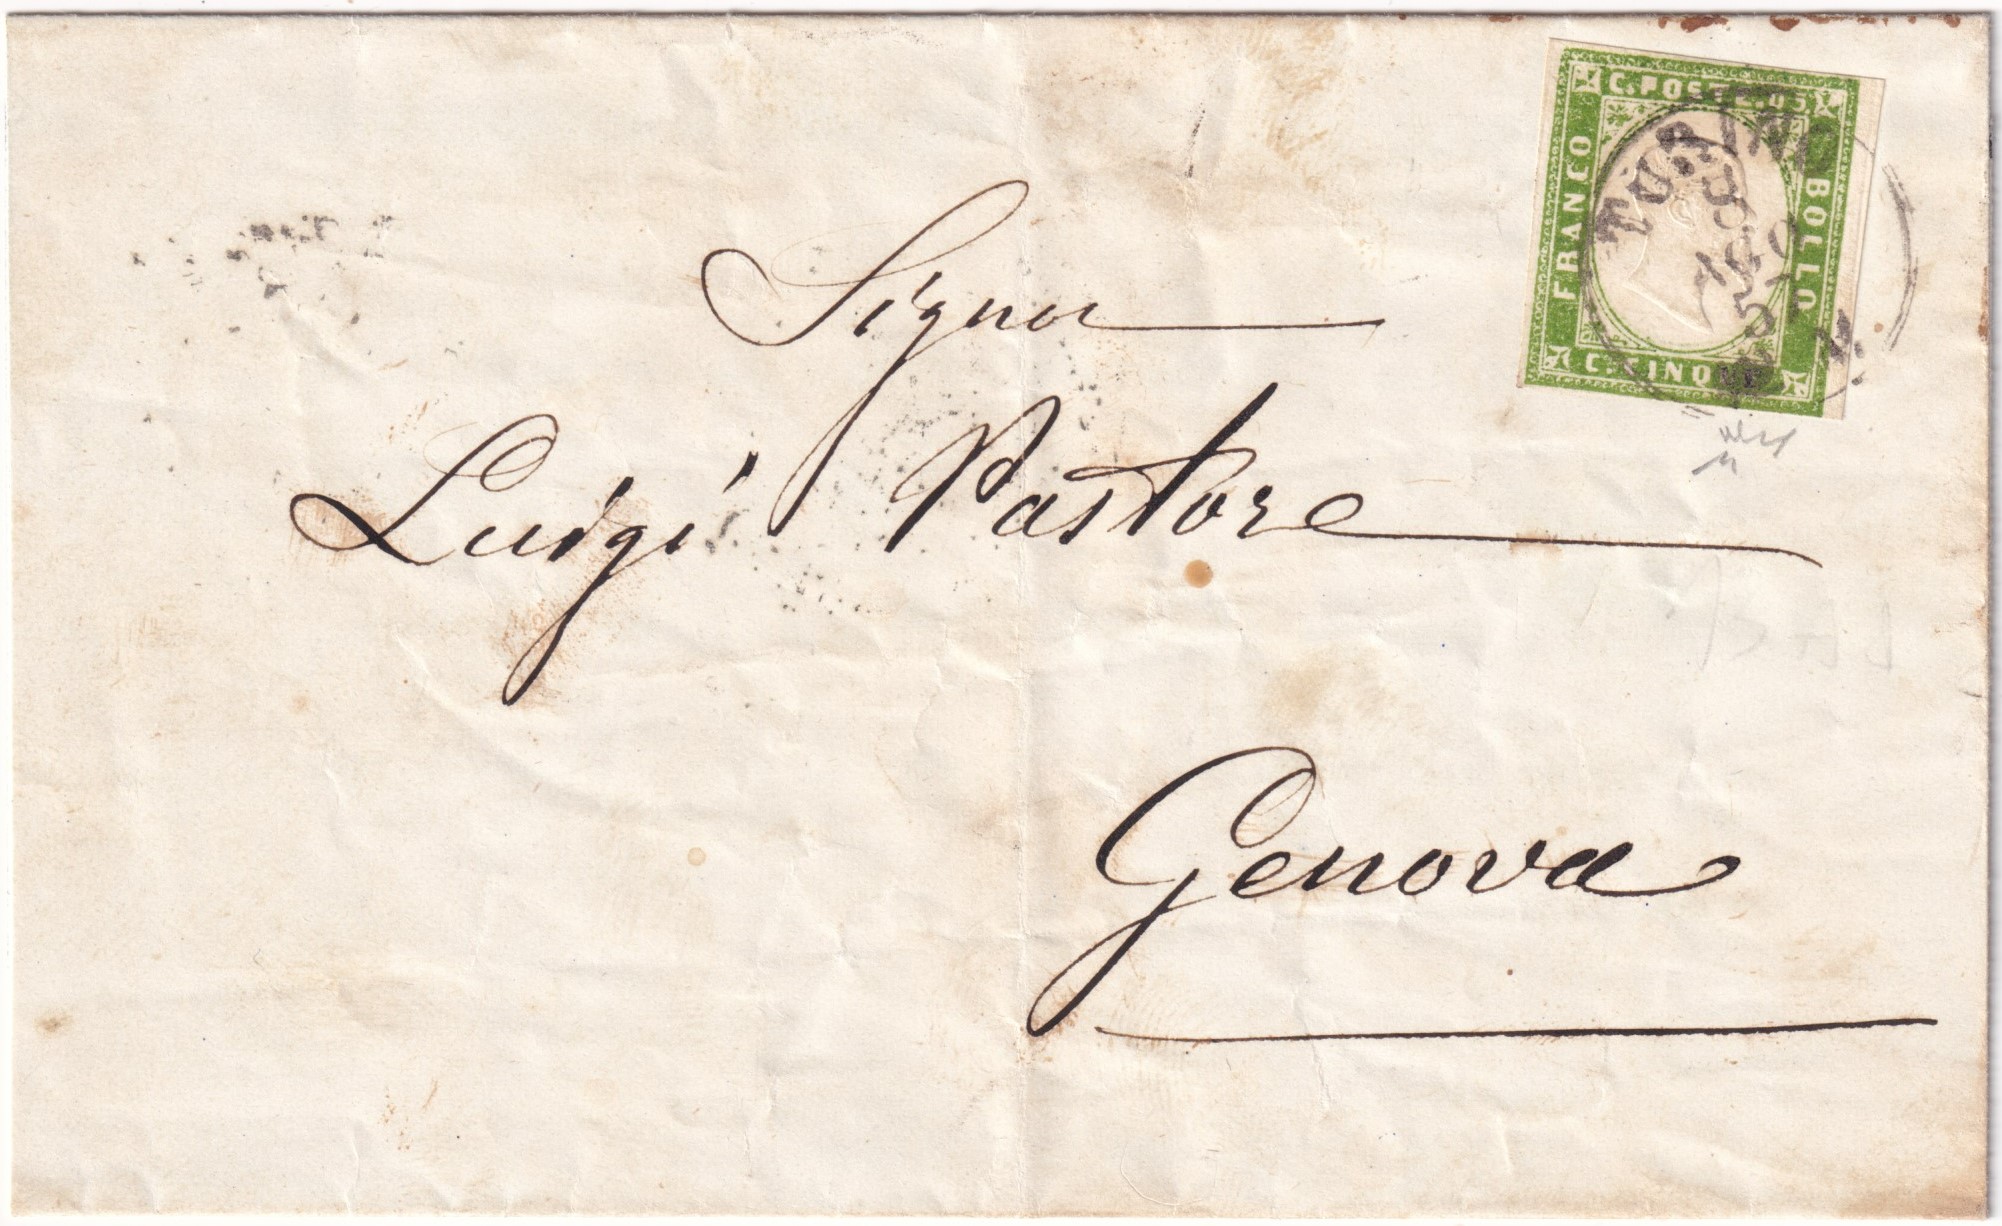 C. POSTE. 05
FRANCO
BOLLO
C. CINQUE
TORINO
Signor
Luigi Pastore
Genova